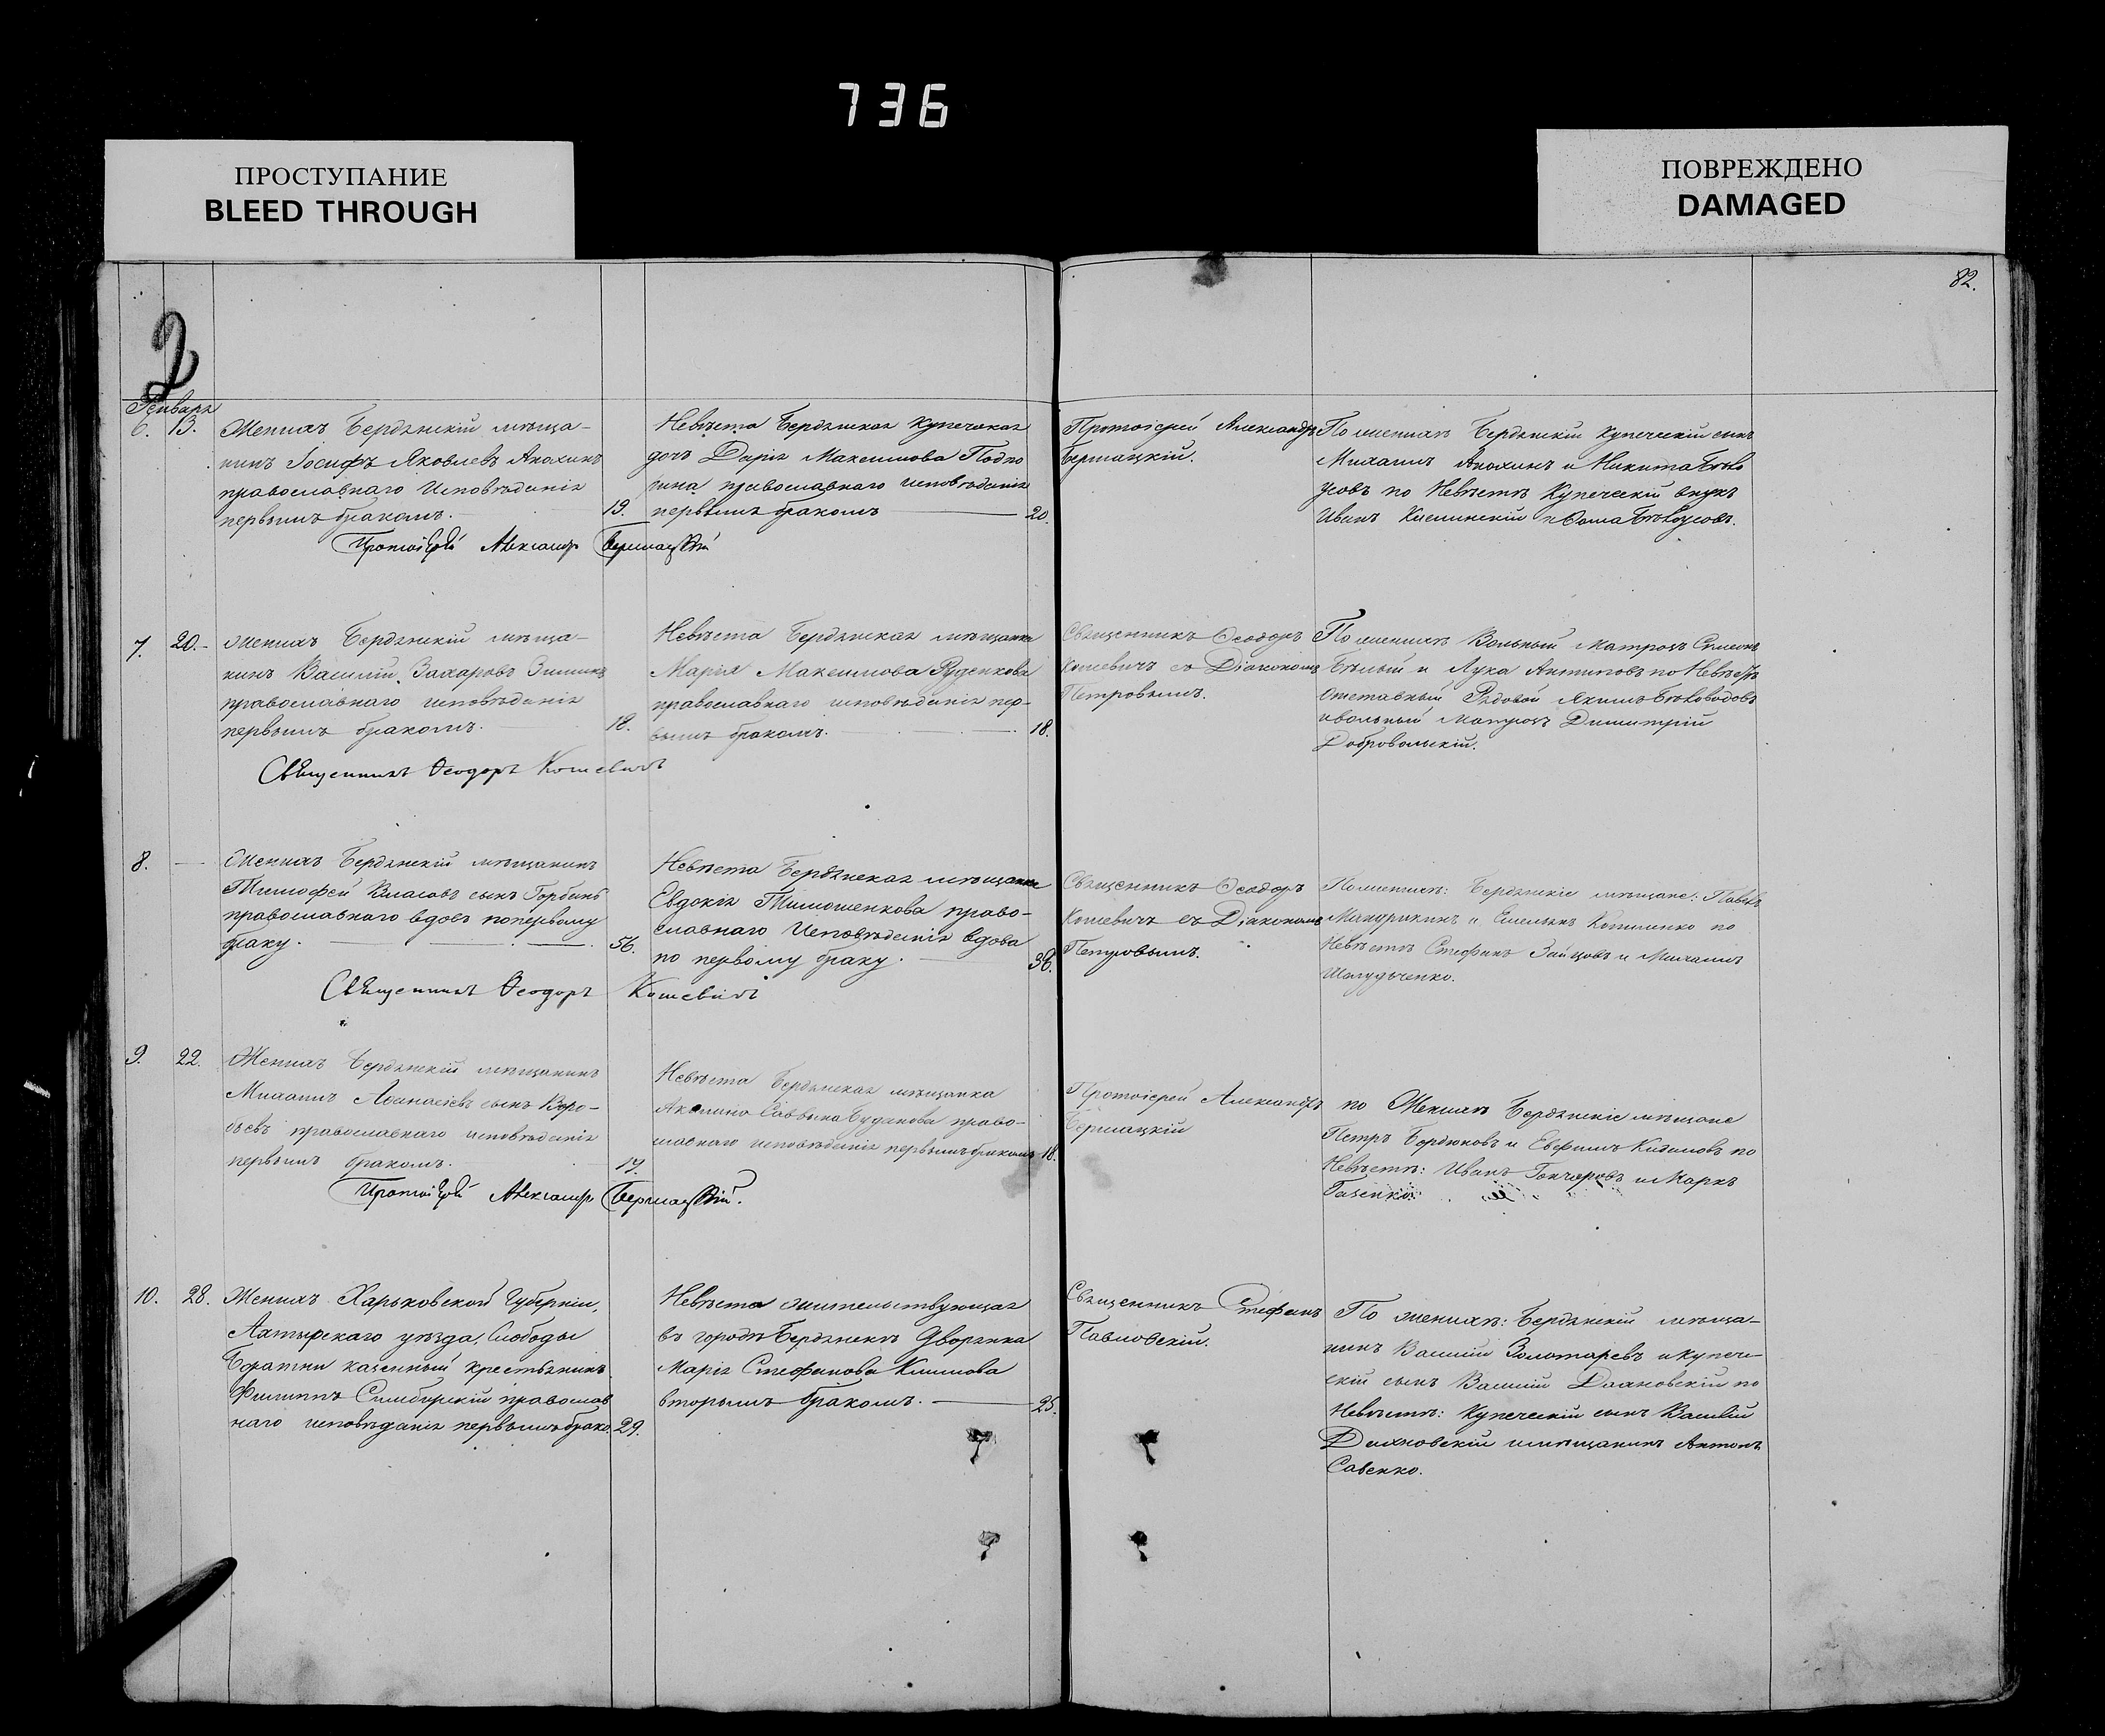 736
ПРОСТУПАНИЕ
BLEED THROUGH
ПОВРЕЖДЕНО
DAMAGED
82.
2
Января
6. 13.
Женихъ Бердянскій мѣща-
нинъ Іосифъ Яковлевъ Анохинъ
православнаго Исповѣданія
первымъ бракомъ.
19.
Невѣста Бердянская купеческая
дочь Дарія Максимова
православнаго исповѣданія
первымъ бракомъ
20.
Протоіерей Александръ
Бершацкій.
По женихѣ Бердянскій купеческій сынъ
Михаилъ Анохинъ и Никита Бѣло
усовъ по Невѣстѣ Купеческій внукъ
Иванъ и Ѳома Бѣлоусовъ.
Протоіерей Александр Бершацкій
7. 20.
Женихъ Бердянскій мѣща-
нинъ Василій Захаровъ
православнаго исповѣданія
первымъ бракомъ.
18.
Невѣста Бердянская мѣщанка
Марія Максимова Руденкова
православнаго исповѣданія пер-
вымъ бракомъ.
18.
Священникъ Ѳеодоръ
Кошевичъ съ Діакономъ
Петровымъ.
По женихѣ Вольный матросъ
Бѣлый и Лука Антиповъ по Невѣстѣ
Отставный Рядовой Якимъ Бѣловодовъ
и вольный матросъ Димитрій
Добровольскій.
Священникъ Ѳеодоръ Кошевичъ
8.
Женихъ Бердянскій мѣщанинъ
Тимофей Власовъ сынъ
православнаго вдовъ по первому
браку.
56.
Невѣста Бердянская мѣщанка
Евдокія Тимошенкова право-
славнаго Исповѣданія вдова
по первому браку.
38.
Священникъ Ѳеодоръ
Кошевичъ съ Діакономъ
Петровымъ.
По женихѣ: Бердянскіе мѣщане: Павелъ
Мандрикинъ и Емельянъ по
Невѣстѣ Стефанъ Зайцовъ и Михаилъ
Шолудченко.
Священникъ Ѳеодоръ Кошевичъ
9. 22.
Женихъ Бердянскій мѣщанинъ
Михаилъ Аѳанасіевъ сынъ Воро-
бьевъ православнаго исповѣданія
первымъ бракомъ.
19.
Невѣста Бердянская мѣщанка
Акилина Саввина Буданова право-
славнаго исповѣданія первымъ бракомъ
18.
Протоіерей Александръ
Бершацкій
по Женихѣ Бердянскіе мѣщане
Петръ Бордюковъ и Евфимъ по
Невѣстѣ: Иванъ Гончаровъ и Маркъ
Протоіерей Александр Бершацкій.
10. 28.
Женихъ Харьковской Губерніи,
Ахтырскаго уѣзда, Слободы
казенный крестьянинъ
Филиппъ Симбирскій православ
наго исповѣданія первымъ брако.
29.
Невѣста жительствующая
въ городѣ Бердянскѣ Дворянка
Марія Стефанова Климова
вторымъ бракомъ.
25.
Священникъ Стефанъ
Павловскій.
По женихѣ: Бердянскій мѣща-
нинъ Василій Золотаревъ и купече-
скій сынъ Василій Дахновскій по
Невѣстѣ: Купеческій сынъ Василій
Дахновскій и мѣщанинъ Антонъ
Савенко.